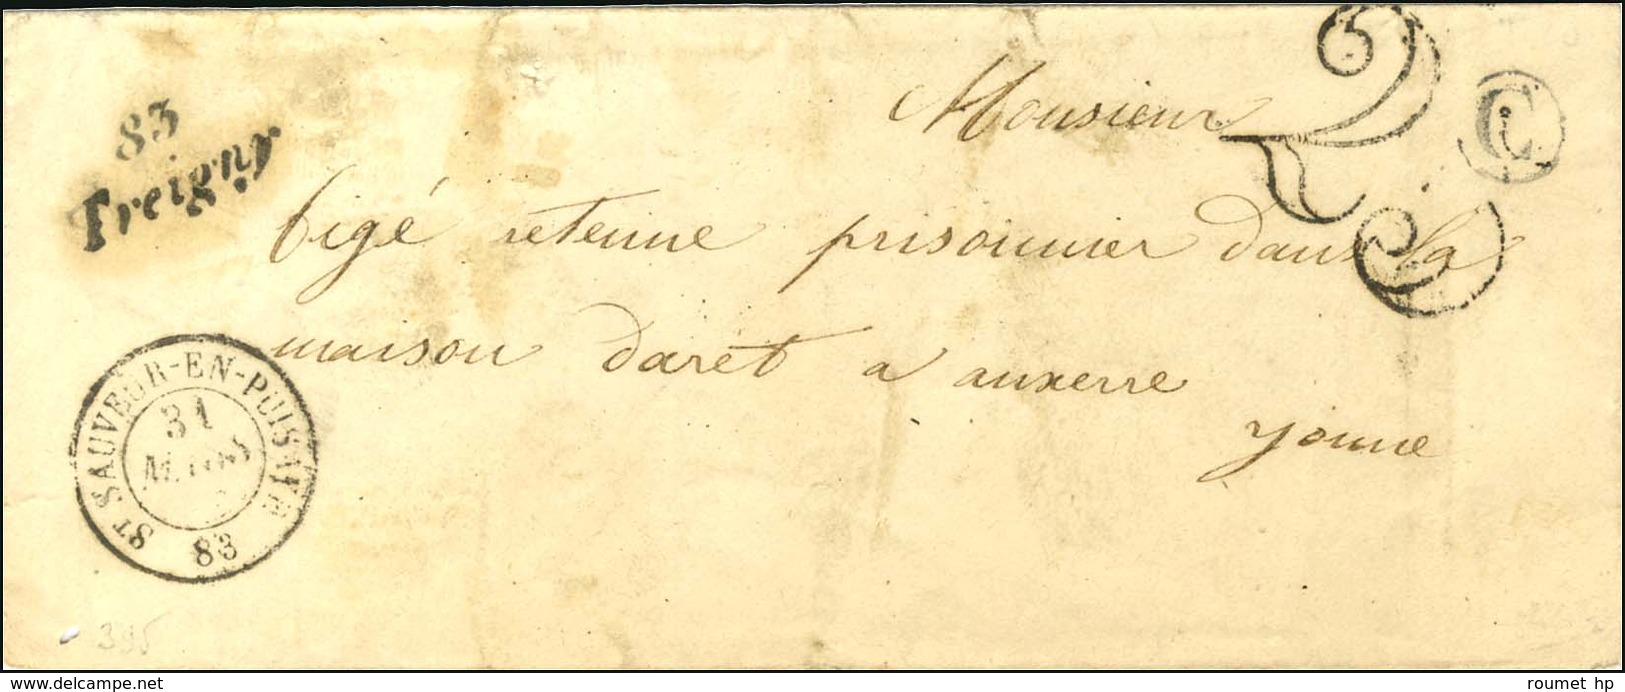 83
Treigny
Monsieur
25
C
bigé retenue prisonnier dans la
maison daret a auxerre
yonne
ST SAUVEUR-EN-PUISAYE
31
MARS
83
395
www.delcampe.net
roumet hp